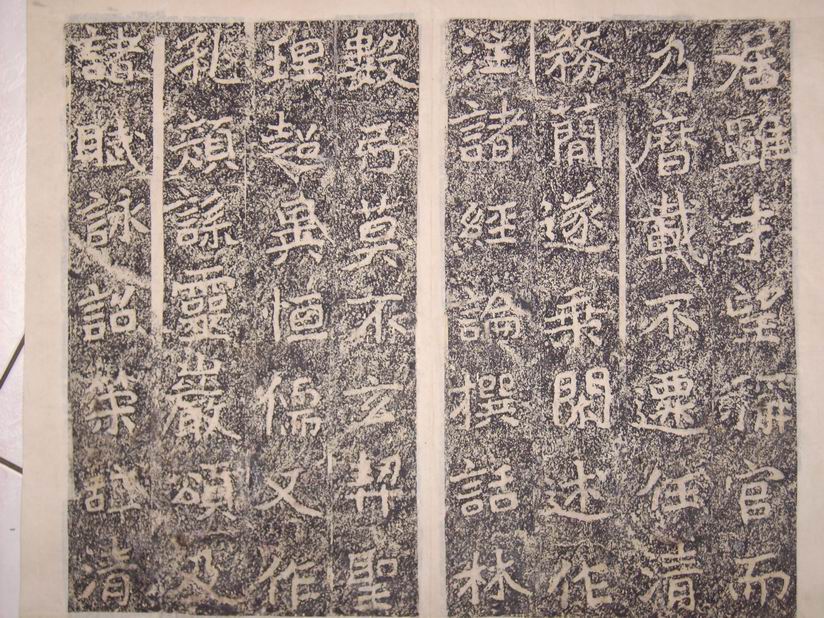 居雖才望稱官而
乃曆載不遷任清
務簡遂乘閑述作
注諸經論撰話林
數弓莫不玄契聖
理超異恒儒又作
孔頏誄靈巖頌及
諸賦詠詔策辭清